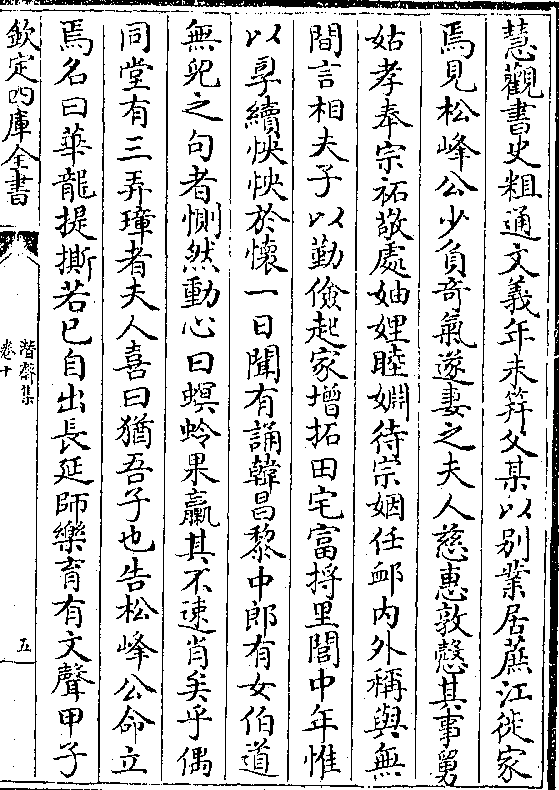 慧觀書史粗通文義年未筓父某以别業居蕉江徙家
焉見松峰公少負竒氣遂妻之夫人慈惠敦慤其事舅
姑孝奉宗祏敬處妯娌睦婣待宗姻任䘏内外稱與無
間言相夫子以勤儉起家增拓田宅富捋里閭中年惟
以享續怏怏於懷一日聞有誦韓昌黎中郎有女伯道
無兒之句者惻然動心曰螟蛉果蠃其不速肖矣乎偶
同堂有三弄璋者夫人喜曰猶吾子也告松峰公命立
焉名曰華龍提撕若已自出長延師樂育有文聲甲子
欽定四庫全書
潛齋集
卷十
五